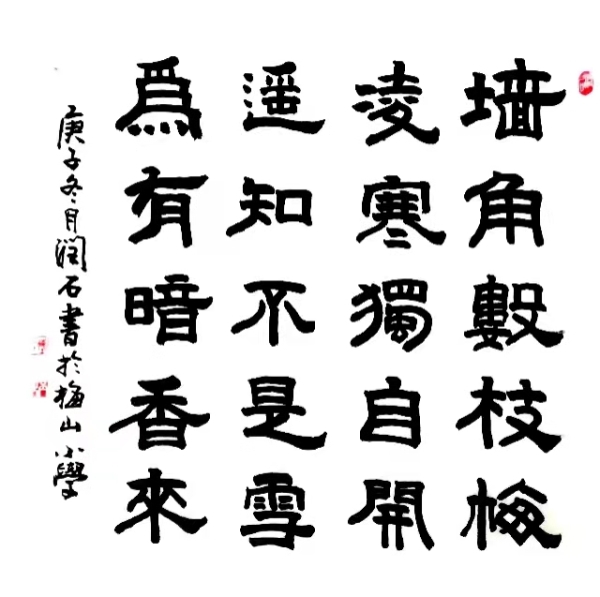 墙角數枝梅
凌寒獨自開
遥知不是雪
爲有暗香來
庚子冬月潤石書於山小學